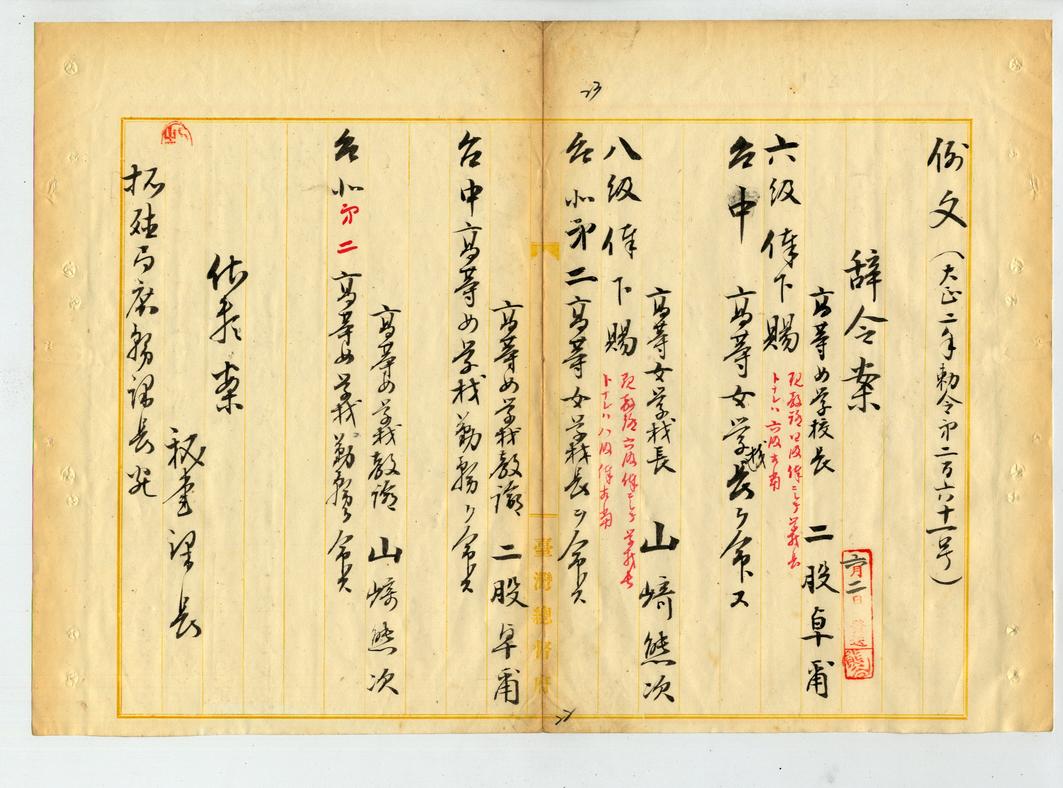 例文(大正二年勅令第二百六十一号)
辞令案
高等女学校長 二股卓甫
六級俸下賜
現教諭四級俸ニシテ学校長
トナレハ六級相当
台中高等女学校長ヲ命ス
高等女学校長 山崎熊次
八級俸下賜
現教諭六級俸ニシテ学校長
トナレハ八級俸相当
台北第二高等女学校長ヲ命ス
高等女学校教諭 二股卓甫
台中高等女学校勤務ヲ命ス
高等女学校教諭 山崎熊次
台北第二高等女学校勤務ヲ命ス
依頼案
秘書課長
拓殖局庶務課長宛
臺灣總督府
六月二日
23